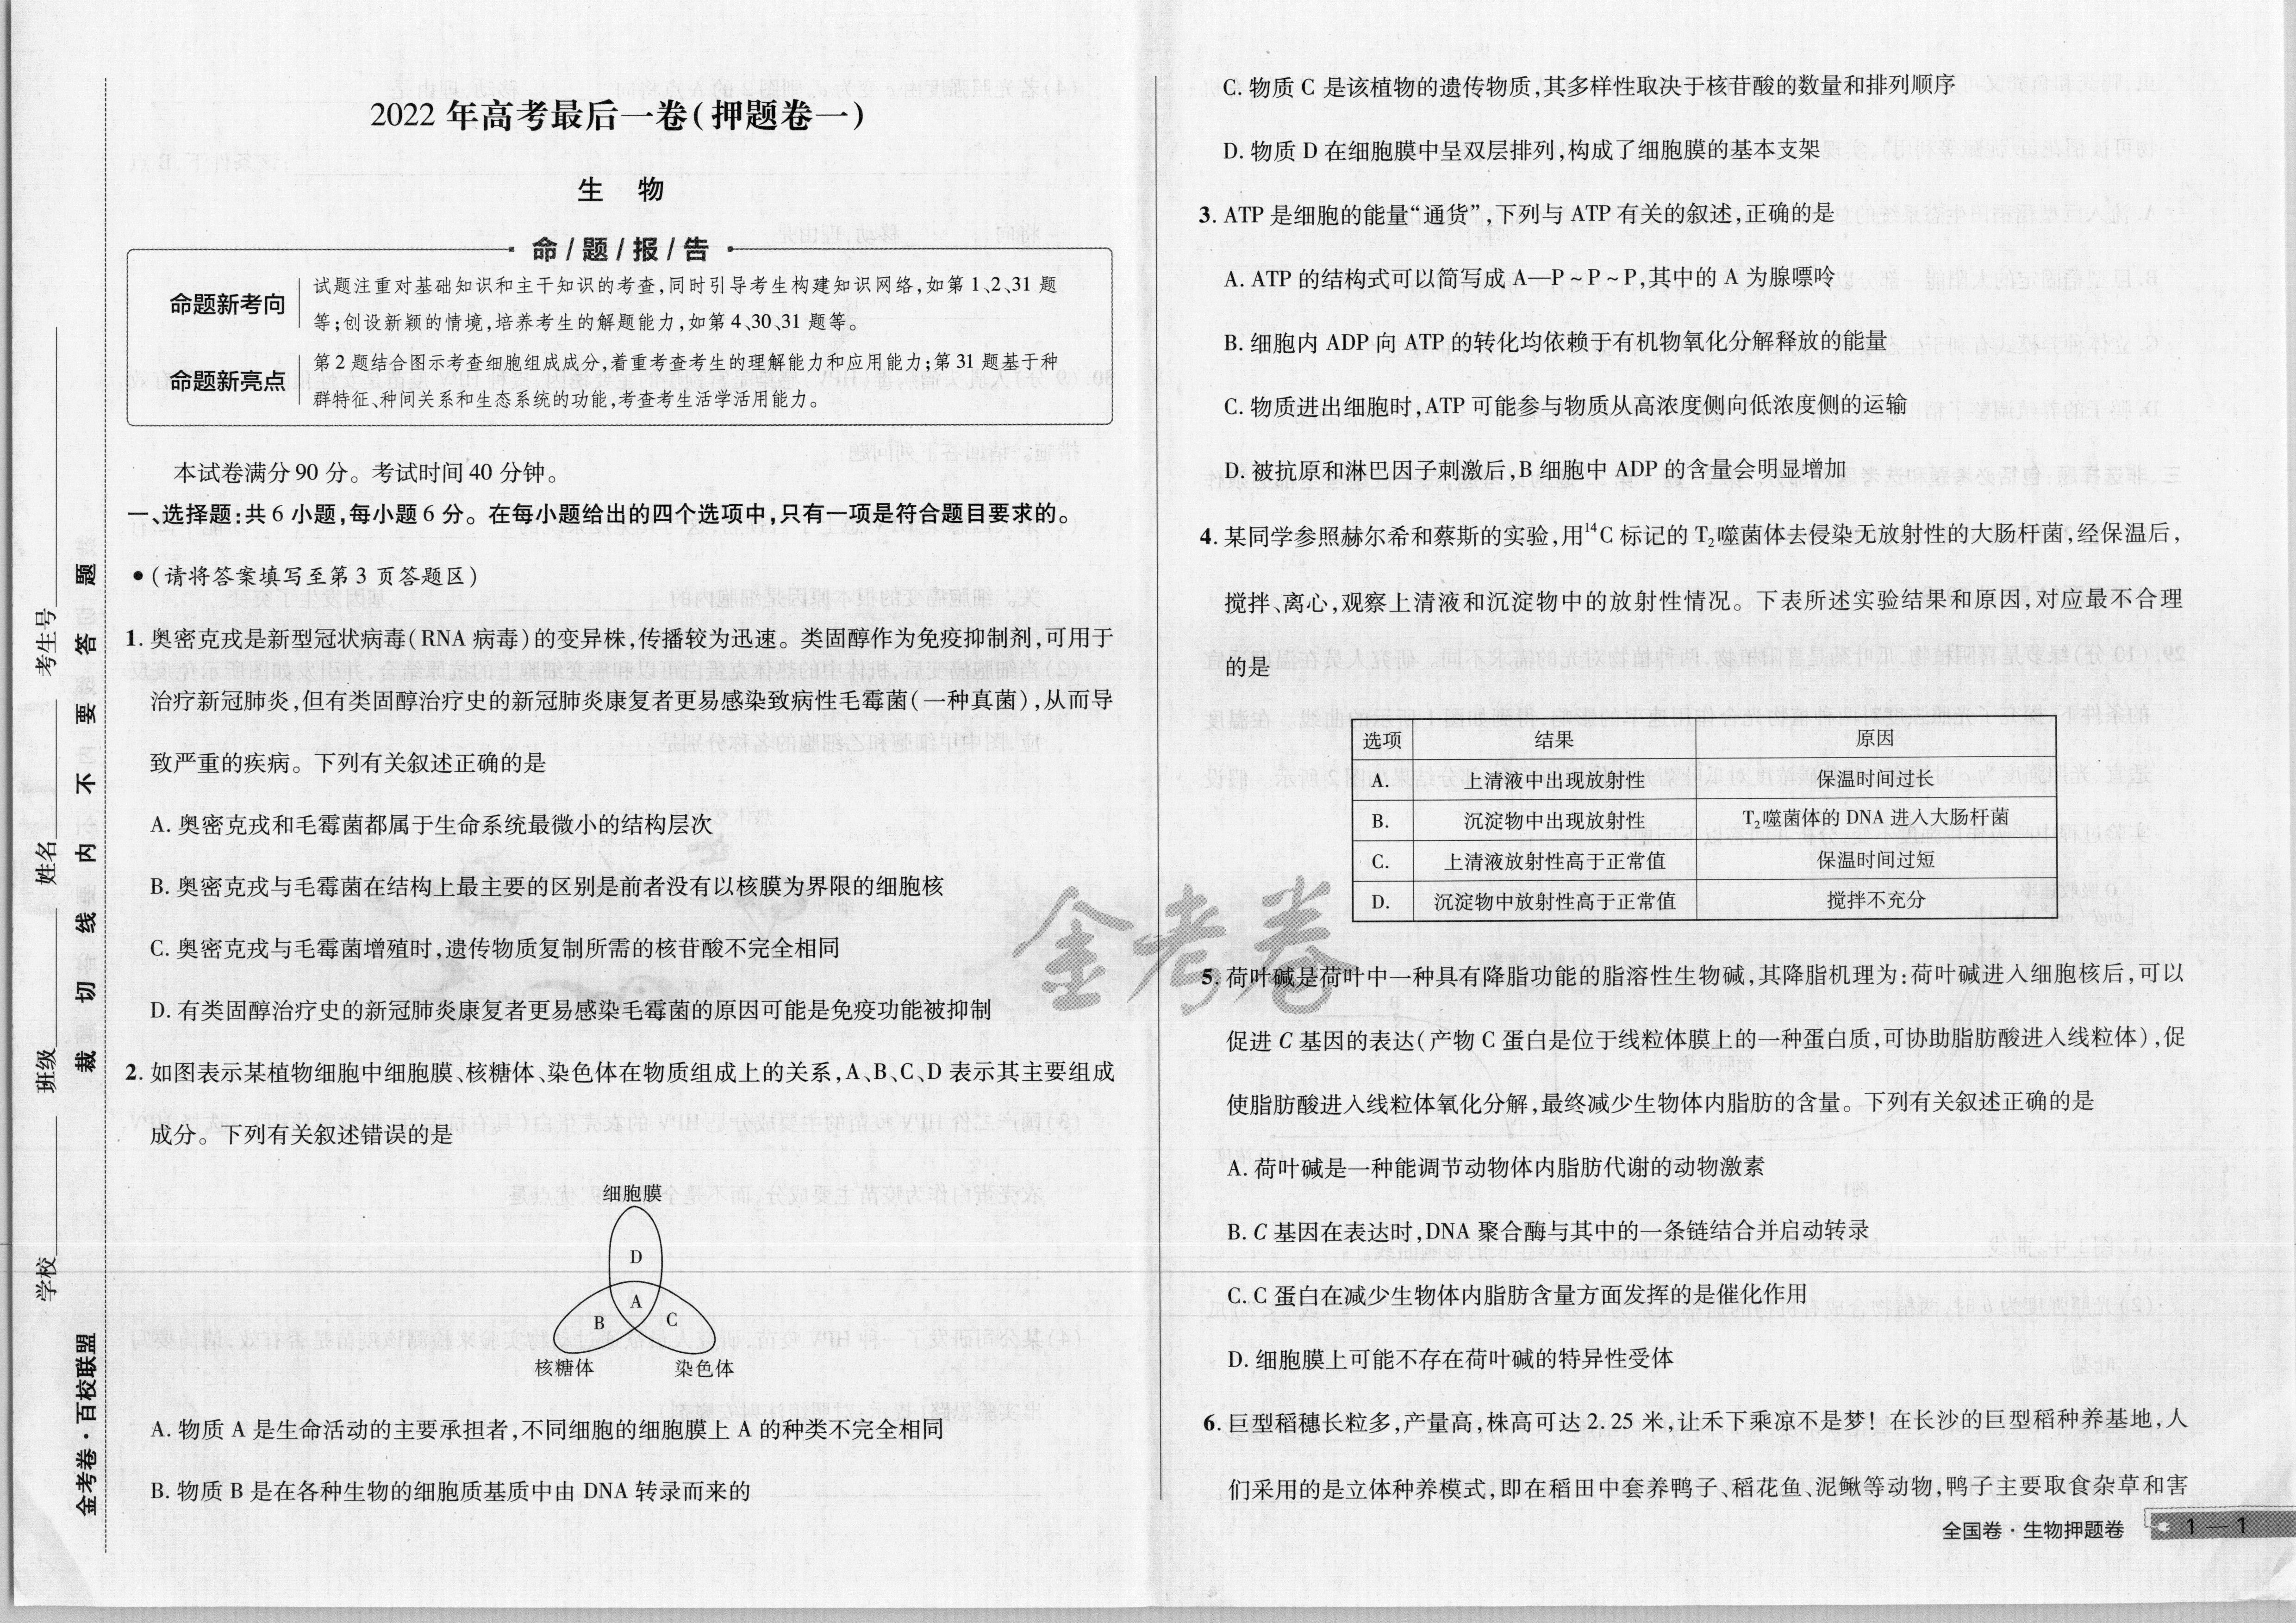 2022 年高考最后一卷(押题卷一)
生 物
命/题/报/告
命题新考向
试题注重对基础知识和主干知识的考查,同时引导考生构建知识网络,如第 1、2、31 题
等;创设新颖的情境,培养考生的解题能力,如第 4、30、31 题等。
命题新亮点
第 2 题结合图示考查细胞组成成分,着重考查考生的理解能力和应用能力;第 31 题基于种
群特征、种间关系和生态系统的功能,考查考生活学活用能力。
本试卷满分 90 分。考试时间 40 分钟。
一、选择题:共 6 小题,每小题 6 分。在每小题给出的四个选项中,只有一项是符合题目要求的。
●(请将答案填写至第 3 页答题区)
1. 奥密克戎是新型冠状病毒(RNA 病毒)的变异株,传播较为迅速。类固醇作为免疫抑制剂,可用于
治疗新冠肺炎,但有类固醇治疗史的新冠肺炎康复者更易感染致病性毛霉菌(一种真菌),从而导
致严重的疾病。下列有关叙述正确的是
A. 奥密克戎和毛霉菌都属于生命系统最微小的结构层次
B. 奥密克戎与毛霉菌在结构上最主要的区别是前者没有以核膜为界限的细胞核
C. 奥密克戎与毛霉菌增殖时,遗传物质复制所需的核苷酸不完全相同
D. 有类固醇治疗史的新冠肺炎康复者更易感染毛霉菌的原因可能是免疫功能被抑制
2. 如图表示某植物细胞中细胞膜、核糖体、染色体在物质组成上的关系,A、B、C、D 表示其主要组成
成分。下列有关叙述错误的是
细胞膜
D
A
B
C
核糖体
染色体
A. 物质 A 是生命活动的主要承担者,不同细胞的细胞膜上 A 的种类不完全相同
B. 物质 B 是在各种生物的细胞质基质中由 DNA 转录而来的
C. 物质 C 是该植物的遗传物质,其多样性取决于核苷酸的数量和排列顺序
D. 物质 D 在细胞膜中呈双层排列,构成了细胞膜的基本支架
3. ATP 是细胞的能量“通货”,下列与 ATP 有关的叙述,正确的是
A. ATP 的结构式可以简写成 A—P ~ P ~ P,其中的 A 为腺嘌呤
B. 细胞内 ADP 向 ATP 的转化均依赖于有机物氧化分解释放的能量
C. 物质进出细胞时,ATP 可能参与物质从高浓度侧向低浓度侧的运输
D. 被抗原和淋巴因子刺激后,B 细胞中 ADP 的含量会明显增加
4. 某同学参照赫尔希和蔡斯的实验,用¹⁴C 标记的 T₂噬菌体去侵染无放射性的大肠杆菌,经保温后,
搅拌、离心,观察上清液和沉淀物中的放射性情况。下表所述实验结果和原因,对应最不合理
的是
选项 结果 原因
A. 上清液中出现放射性 保温时间过长
B. 沉淀物中出现放射性 T₂噬菌体的 DNA 进入大肠杆菌
C. 上清液放射性高于正常值 保温时间过短
D. 沉淀物中放射性高于正常值 搅拌不充分
5. 荷叶碱是荷叶中一种具有降脂功能的脂溶性生物碱,其降脂机理为:荷叶碱进入细胞核后,可以
促进 C 基因的表达(产物 C 蛋白是位于线粒体膜上的一种蛋白质,可协助脂肪酸进入线粒体),促
使脂肪酸进入线粒体氧化分解,最终减少生物体内脂肪的含量。下列有关叙述正确的是
A. 荷叶碱是一种能调节动物体内脂肪代谢的动物激素
B. C 基因在表达时,DNA 聚合酶与其中的一条链结合并启动转录
C. C 蛋白在减少生物体内脂肪含量方面发挥的是催化作用
D. 细胞膜上可能不存在荷叶碱的特异性受体
6. 巨型稻穗长粒多,产量高,株高可达 2.25 米,让禾下乘凉不是梦! 在长沙的巨型稻种养基地,人
们采用的是立体种养模式,即在稻田中套养鸭子、稻花鱼、泥鳅等动物,鸭子主要取食杂草和害
全国卷·生物押题卷 1—1
金考卷
考生号
姓名
班级
学校
裁 切 线 内 不 要 答 题
金考卷·百校联盟